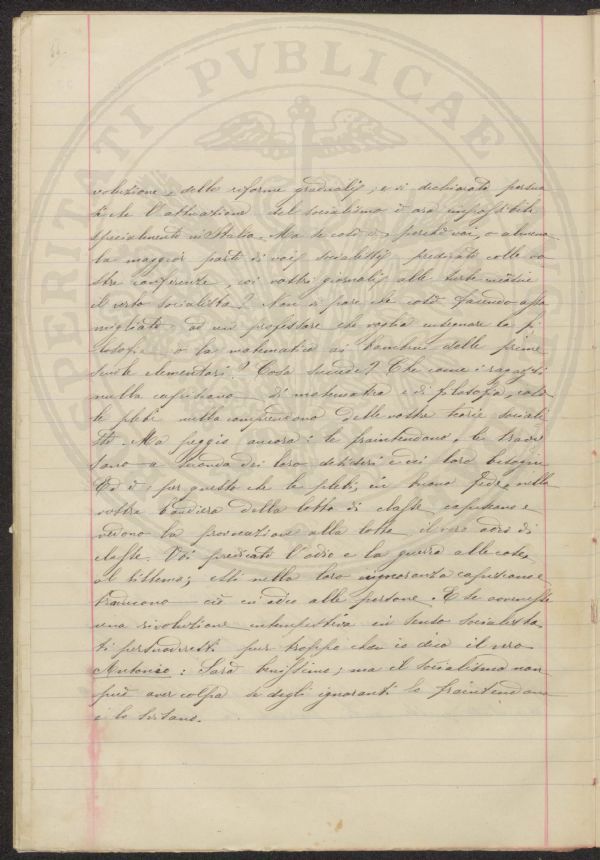 voluzione, delle riforme gradualiſ, e si dichiarato persua
so che l'attuazione del socialismo è ora impoſsibile
specialmente in Italia. Ma se così è, perchè voi, o almeno
la maggior parte di voiſ socialistiſ, predicate colle vo
stre conferenze, coi vostri giornaliſ alle turbe
il verbo socialista? Non vi pare che così facendo aſso
migliate ad un professore che voglia insegnare la fi
losofia o la matematica ai bambini delle prime
scuole elementari? Cosa succede? Che come i ragazzi
nulla capiscono di matematica e di filosofia, così
le plebi nulla comprendono delle vostre teorie sociali
ste. Ma peggio ancora: le fraintendono, le travi
sano a seconda dei loro desideri e dei loro bisogni.
Ed è per questo che le plebi, in buona fede, nella
vostra bandiera della lotta di claſse capiscono e
vedono la provocazione alla lotta, il vero odio di
claſse. Voi predicate l'odio e la guerra alle cose,
al sistema; essi nella loro ignoranza capiscono e
traducono ciò in odio alle persone. E se avveniſse
una rivoluzione intempestiva in senso socialista
ti persuaderesti pur troppo che io dico il vero.
Antonio: Sarà beniſsimo; ma il socialismo non
può aver colpa se degli ignoranti lo fraintendono
e lo svisano.
PROSPERITATI PVBLICAE